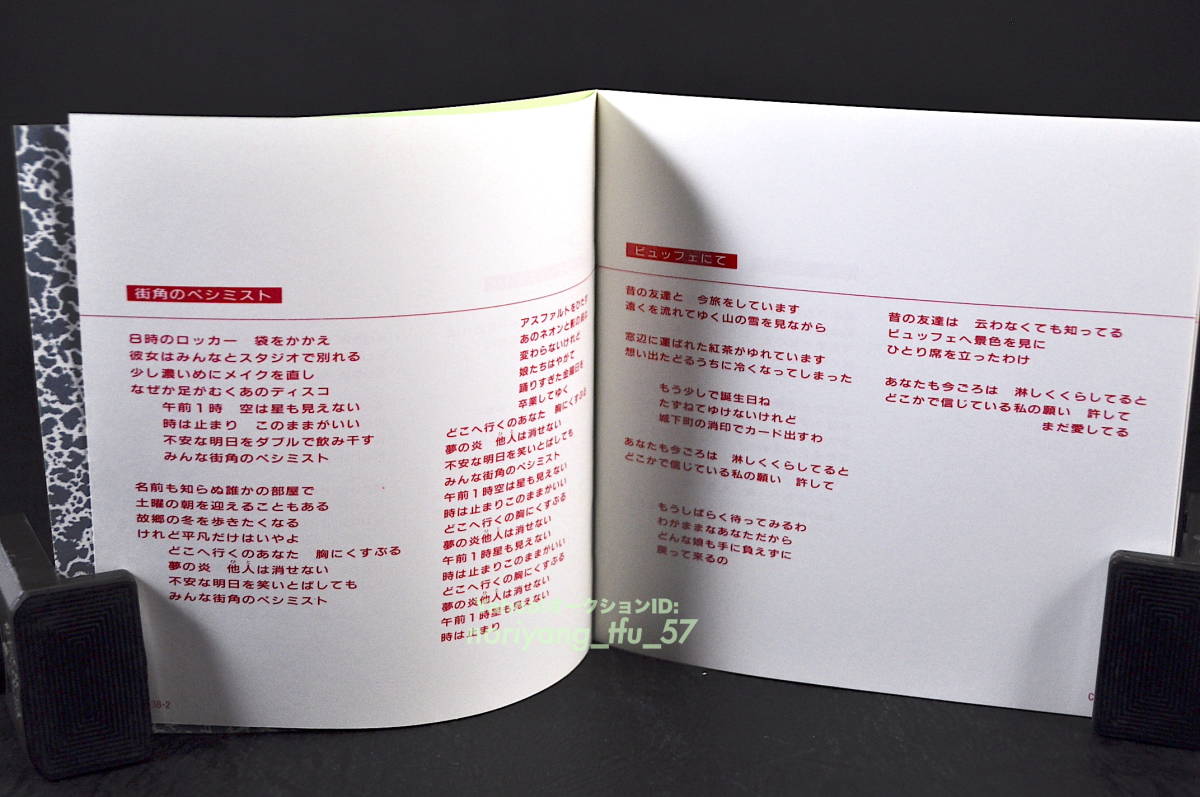 街角のペシミスト
8時のロッカー 袋をかかえ
彼女はみんなとスタジオで別れる
少し濃いめにメイクを直し
なぜか足がむくあのディスコ
午前1時 空は星も見えない
時は止まり このままがいい
不安な明日をダブルで飲み干す
みんな街角のペシミスト
名前も知らぬ誰かの部屋で
土曜の朝を迎えることもある
故郷の冬を歩きたくなる
けれど平凡だけはいやよ
どこへ行くのあなた 胸にくすぶる
夢の炎 他人は消せない
不安な明日を笑いとばしても
みんな街角のペシミスト
アスファルトをひたす
あのネオンと
変わらないけれど
娘たちはやがて
踊りすぎた金曜日を
卒業してゆく
どこへ行くのあなた 胸にくすぶる
夢の炎 他人は消せない
不安な明日を笑いとばしても
みんな街角のペシミスト
午前1時空は星も見えない
時は止まりこのままがいい
どこへ行くの胸にくすぶる
夢の炎他人は消せない
午前1時星も見えない
時は止まりこのままがいい
どこへ行くの胸にくすぶる
夢の炎他人は消せない
午前1時星も見えない
時は止まり
38-2
ビュッフェにて
昔の友達と 今旅をしています
遠くを流れてゆく山の雪を見ながら
窓辺に運ばれた紅茶がゆれています
想い出たどるうちに冷くなってしまった
もう少しで誕生日ね
たずねてゆけないけれど
城下町の消印でカード出すわ
あなたも今ごろは 淋しくくらしてると
どこかで信じている私の願い 許して
もうしばらく待ってみるわ
わがままなあなただから
どんな娘も手に負えずに
戻って来るの
昔の友達は 云わなくても知ってる
ビュッフェへ景色を見に
ひとり席を立ったわけ
あなたも今ごろは 淋しくくらしてると
どこかで信じている私の願い 許して
まだ愛してる
C
オークションID:
noriyong_tfu_57